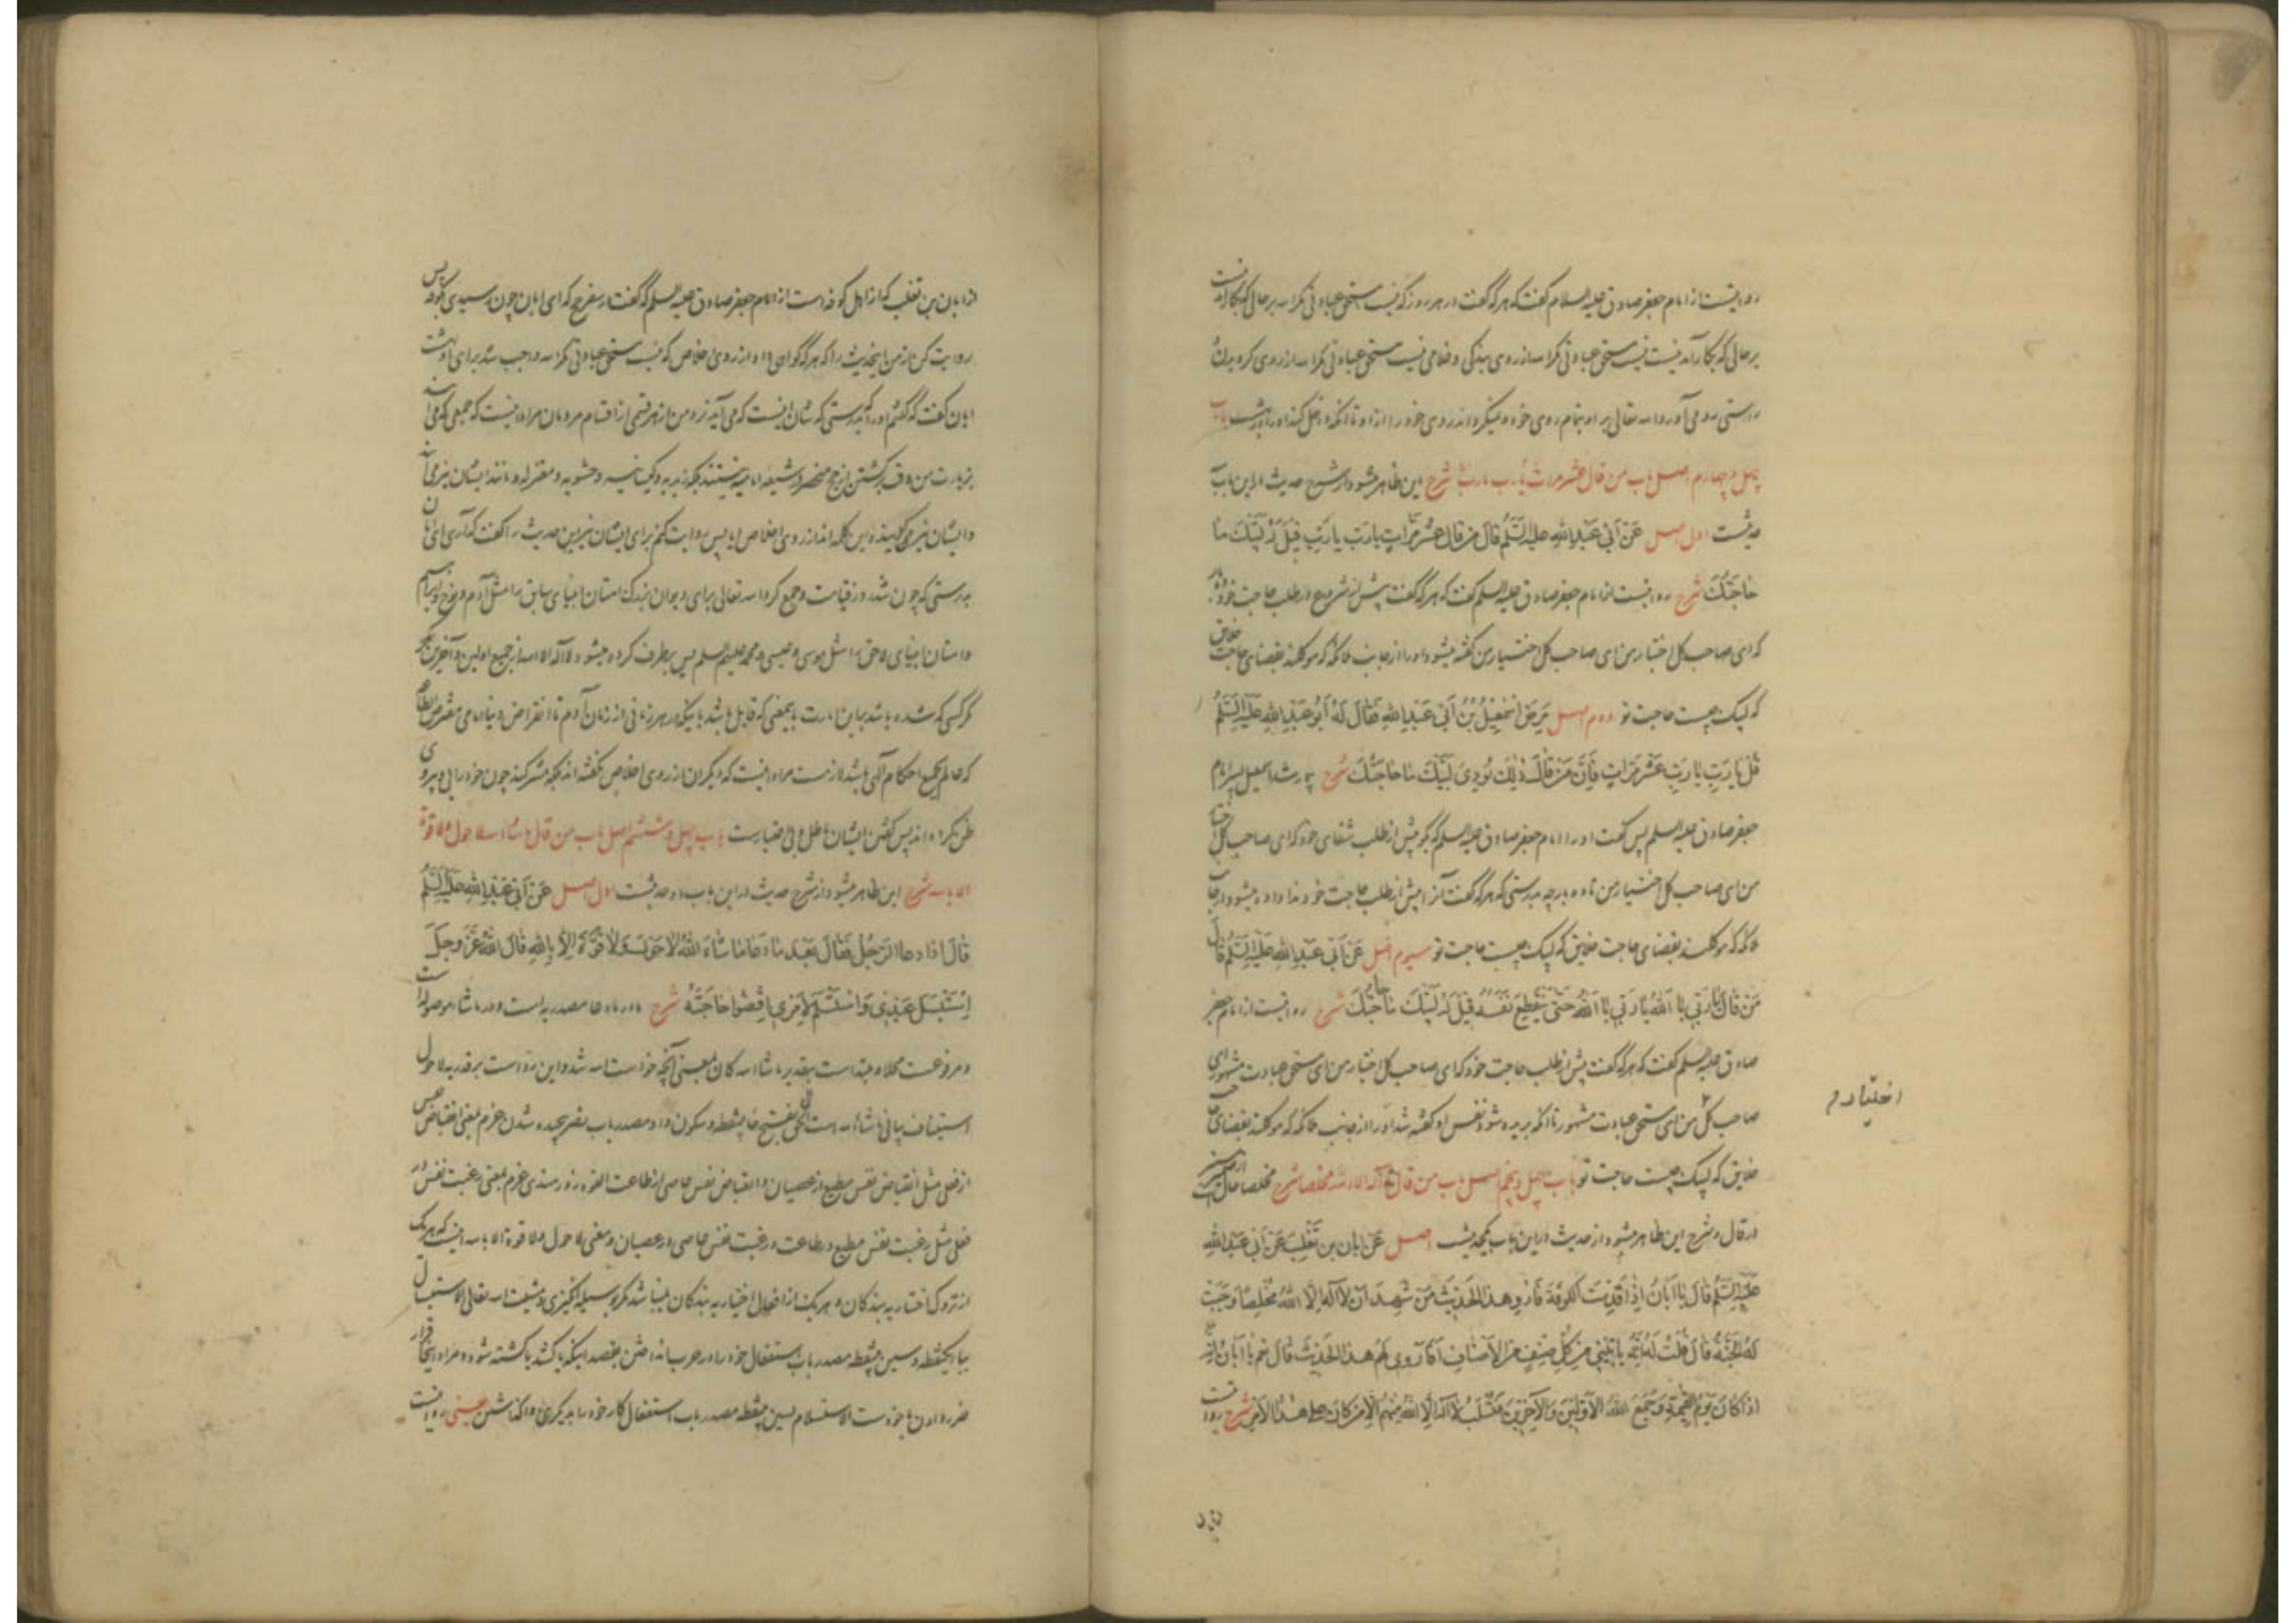 روایتست از امام جعفر صادق علیه السلام گفت که هر که گفت در هر روز که نیست مستحق عبادتی مگر الله بر حالی که بکار آمدنیست
بر حالی که بکار آمدنیست نیست مستحق عبادتی مگر الله از روی بندگی و غلامی نیست مستحق عبادتی مگر الله از روی گرویدن
راستی رو می آورد الله تعالی بر او بتمام روی خود و نمیگرداند روی خود را از او تا آنکه داخل کند او را بهشت باب
چهل و چهارم اصل باب من قال عشر مرات یا رب یا رب شرح این ظاهر میشود از شرح حدیث در این باب
حدیثست اول اصل عَنْ اَبی عَبْدِ اللهِ علیه السَّلم قالَ مَنْ قالَ عَشْرَ مَرّاتٍ یا رَبِّ یا رَبِّ قیلَ لَهُ لَبَّیْکَ ما
حاجَتُکَ شرح روایتست از امام جعفر صادق علیه السلم گفت که هر که گفت پیش از شروع در طلب حاجت خود ده بار
که ای صاحب کل اختیار من ای صاحب کل اختیار من گفته میشود او را از جانب ملائکه که موکلند بقضای حاجت خلایق
که لبیک چیست حاجت تو دوم اصل مَرِضَ اِسْمعیلُ بْنُ اَبی عَبْدِ اللهِ فَقالَ لَهُ اَبُو عَبْدِ اللهِ عَلَیْهِ السَّلم
قُلْ یا رَبِّ یا رَبِّ عَشْرَ مَرّاتٍ فَاِنَّ مَنْ قالَ ذٰلِکَ نُودِیَ لَبَّیْکَ ما حاجَتُکَ شرح بیمار شد اسمعیل پسر امام
جعفر صادق علیه السلم پس گفت او را امام جعفر صادق علیه السلم که بگو پیش از طلب شفای خود که ای صاحب کل اختیار
من ای صاحب کل اختیار من تا ده بار چه بدرستی که هر که گفت آنرا پیش از طلب حاجت خود ندا داده میشود از جانب
ملائکه که موکلند بقضای حاجت خلایق که لبیک چیست حاجت تو سیوم اصل عَنْ اَبی عَبْدِ اللهِ عَلَیْهِ السَّلم قالَ
مَنْ قالَ یا رَبّی یا اَللهُ یا رَبّی یا اَللهُ حَتّی یَنْقَطِعَ نَفَسُهُ قیلَ لَهُ لَبَّیْکَ ما حاجَتُکَ شرح روایتست از امام جعفر
صادق علیه السلم گفت که هر که گفت پیش از طلب حاجت خود که ای صاحب کل اختیار من ای مستحق عبادت مشهور ای
صاحب کل من ای مستحق عبادت مشهور تا آنکه بریده شود نفس او گفته شد او را از جانب ملائکه که موکلند بقضای
اختیار م
خلایق که لبیک چیست حاجت تو باب چهل و پنجم اصل باب من قال لا آله الا الله مخلصا شرح مخلصا حال
در قال و شرح این ظاهر میشود از حدیث در این باب یکحدیث اصل عَنْ اَبان بن تَغْلِبَ عَنْ اَبی عَبْدِ اللهِ
عَلَیْهِ السَّلم قالَ یا اَبانُ اِذا قَدِمْتَ الْکُوفَةَ فَارْوِ هذَا الْحَدیثَ مَنْ شَهِدَ اَنْ لا آلهَ اِلَّا اللهُ مُخْلِصًا وَجَبَتْ
لَهُ الْجَنَّةُ قالَ قُلْتُ لَهُ اِنَّهُ یَاْتینی مِنْ کُلِّ صِنْفٍ مِنَ الْاَصْنافِ اَفَاَرْوی لَهُمْ هذَا الْحَدیثَ قالَ نَعَمْ یا اَبانُ اِنَّهُ
اِذا کانَ یَوْمُ الْقِیمَةِ وَجَمَعَ اللهُ الْاَوَّلینَ وَالْآخِرینَ فَتُسْلَبُ لا آلهَ اِلَّا اللهُ مِنْهُمْ اِلّا مَنْ کانَ عَلی هذَا الْاَمْرِ شرح روایتست
از ابان بن تغلب که از اهل کوفه است از امام جعفر صادق علیه السلم که گفت در سفر حج که ای ابان چون رسیدی بکوفه پس
روایت کن از من اینحدیث را که هر که گواهی داد از روی اخلاص که نیست مستحق عبادتی مگر الله واجب شد برای او بهشت
ابان گفت که گفتم او را که بدرستی که شان اینست که می آید نزد من از هر قسمی از اقسام مردمان مراد اینست که جمعی که می آیند
بزیارت من وقت برگشتن از حج منحصر در شیعه امامیه نیستند بلکه زیدیه و کیسانیه و حشویه و معتزله و مانند ایشان نیز می آیند
و ایشان نیز میگویند این کلمه را از روی اخلاص آیا پس روایت کنم برای ایشان نیز این حدیث را گفت که آری ای ابان
بدرستی که چون شد روز قیامت و جمع کرد الله تعالی برای دیوان بزرگ امتان انبیای سابق را مثل آدم و نوح و ابراهیم
و امتان انبیای لاحق را مثل موسی و عیسی و محمد علیهم السلم پس برطرف کرده میشود لا آله الا الله از جمیع اولین و آخرین مگر
مگر کسی که شده باشد بر این امارت باینمعنی که قایل باشد باینکه در هر زمانی از زمان آدم تا انقراض دنیا امامی مفترض الطاعه
که عالم بجمیع احکام آلهی باشد لازمست مراد اینست که دیگران از روی اخلاص نگفته اند بلکه مشرکند چون خود رایی و پیروی
ظن کرده اند پس گفتن ایشان باطل و بی اعتبارست باب چهل و ششم اصل باب من قال ما شاء الله لا حول ولا قوة
الا بالله شرح این ظاهر میشود از شرح حدیث در این باب دو حدیثست اول اصل عَنْ اَبی عَبْدِ اللهِ عَلَیْهِ السَّلم
قالَ اِذا دَعَا الرَّجُلُ فَقالَ بَعْدَ ما دَعا ما شاءَ اللهُ لا حَوْلَ وَلا قُوَّةَ اِلّا بِاللهِ قالَ اللهُ عَزَّ وَجَلَّ
اِسْتَبْسَلَ عَبْدی وَاسْتَسْلَمَ لِاَمْری اِقْضُوا حاجَتَهُ شرح ما در ما دعا مصدریه است و در ما شاء موصوله است
و مرفوعست محلا و مبتداست بتقدیر ما شاء الله کان بمعنی آنچه خواست الله شد و این رد است بر قدریه لا حول
استیناف بیانی ما شاء الله است بفتح حاء بینقطه و سکون واو مصدر باب نصر پیچیده شدن عزم بمعنی انقباض نفس
از فعلی مثل انقباض نفس مطیع از عصیان و انقباض نفس عاصی از طاعت القوه زورمندی عزم بمعنی رغبت نفس در
فعلی مثل رغبت نفس مطیع در طاعت و رغبت نفس عاصی در عصیان و معنی لا حول ولا قوة الا بالله اینست که هر یک
از تروک اختیاریه بندگان و هر یک از افعال اختیاریه بندگان نمیباشد مگر بوسیله انگیزی و مشیت الله تعالی الاستبسال
ببا یکنقطه و سین بینقطه مصدر باب استفعال خود را در حرب انداختن بقصد اینکه یا کشد یا کشته شود و مراد اینجا قرار
ضرر دادن با خود است الاستسلام بسین بینقطه مصدر باب استفعال کار خود را بدیگری واگذاشتن یعنی روایتست